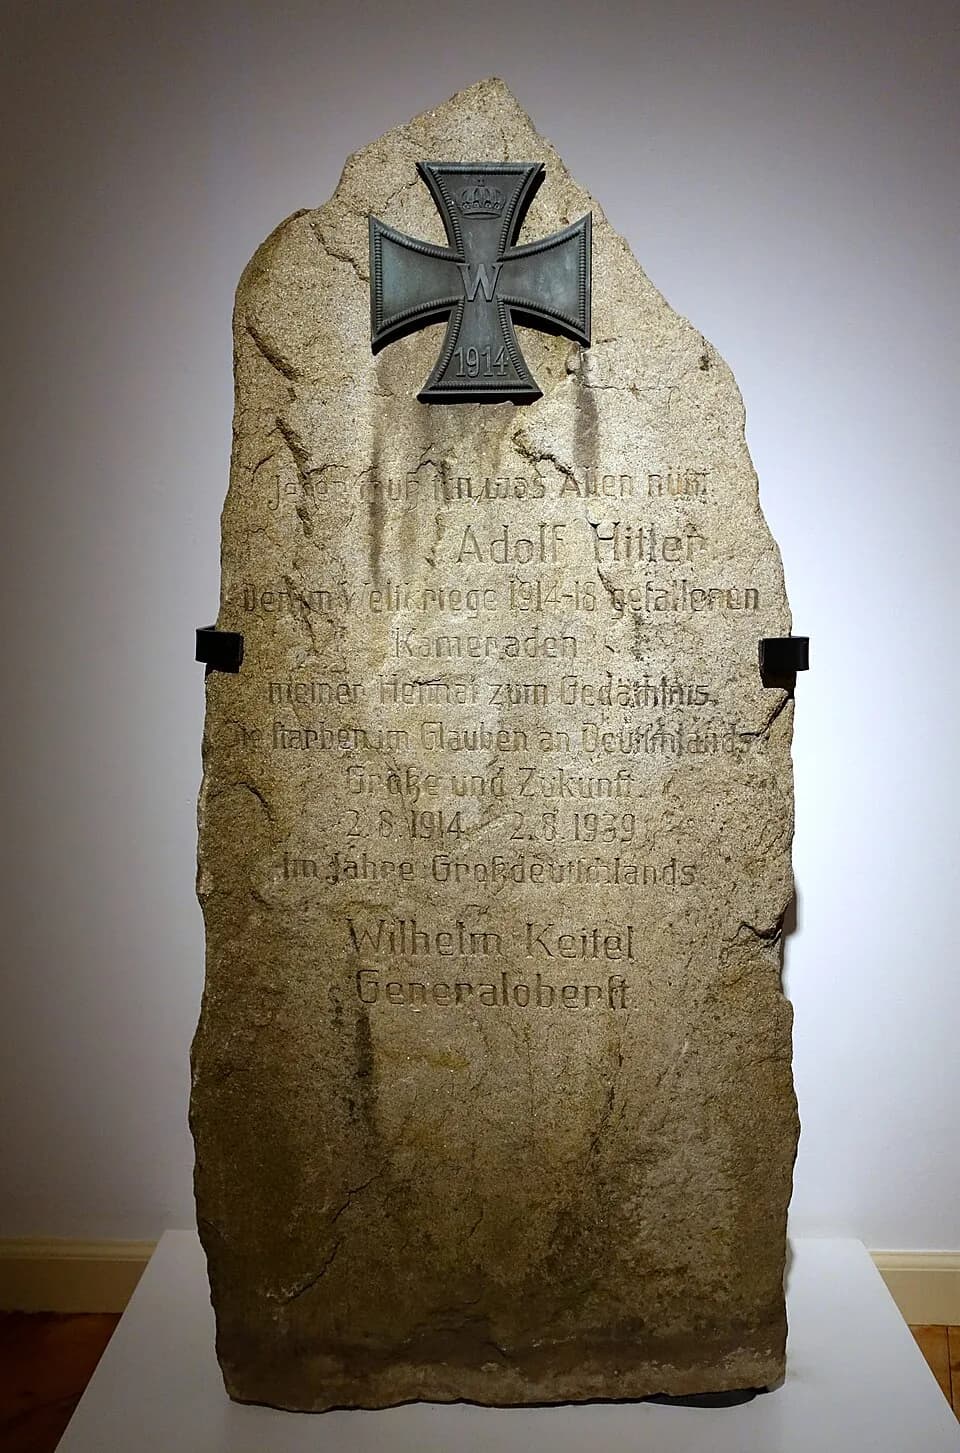 W
1914
Jeder muß tun, was Allen nützt.
Adolf Hitler
Den im Weltkriege 1914-18 gefallenen
Kameraden
meiner Heimat zum Gedächtnis.
Sie starben im Glauben an Deutschlands
Größe und Zukunft.
2.8.1914 2.8.1939
Im Jahre Großdeutschlands.
Wilhelm Keitel
Generaloberst.